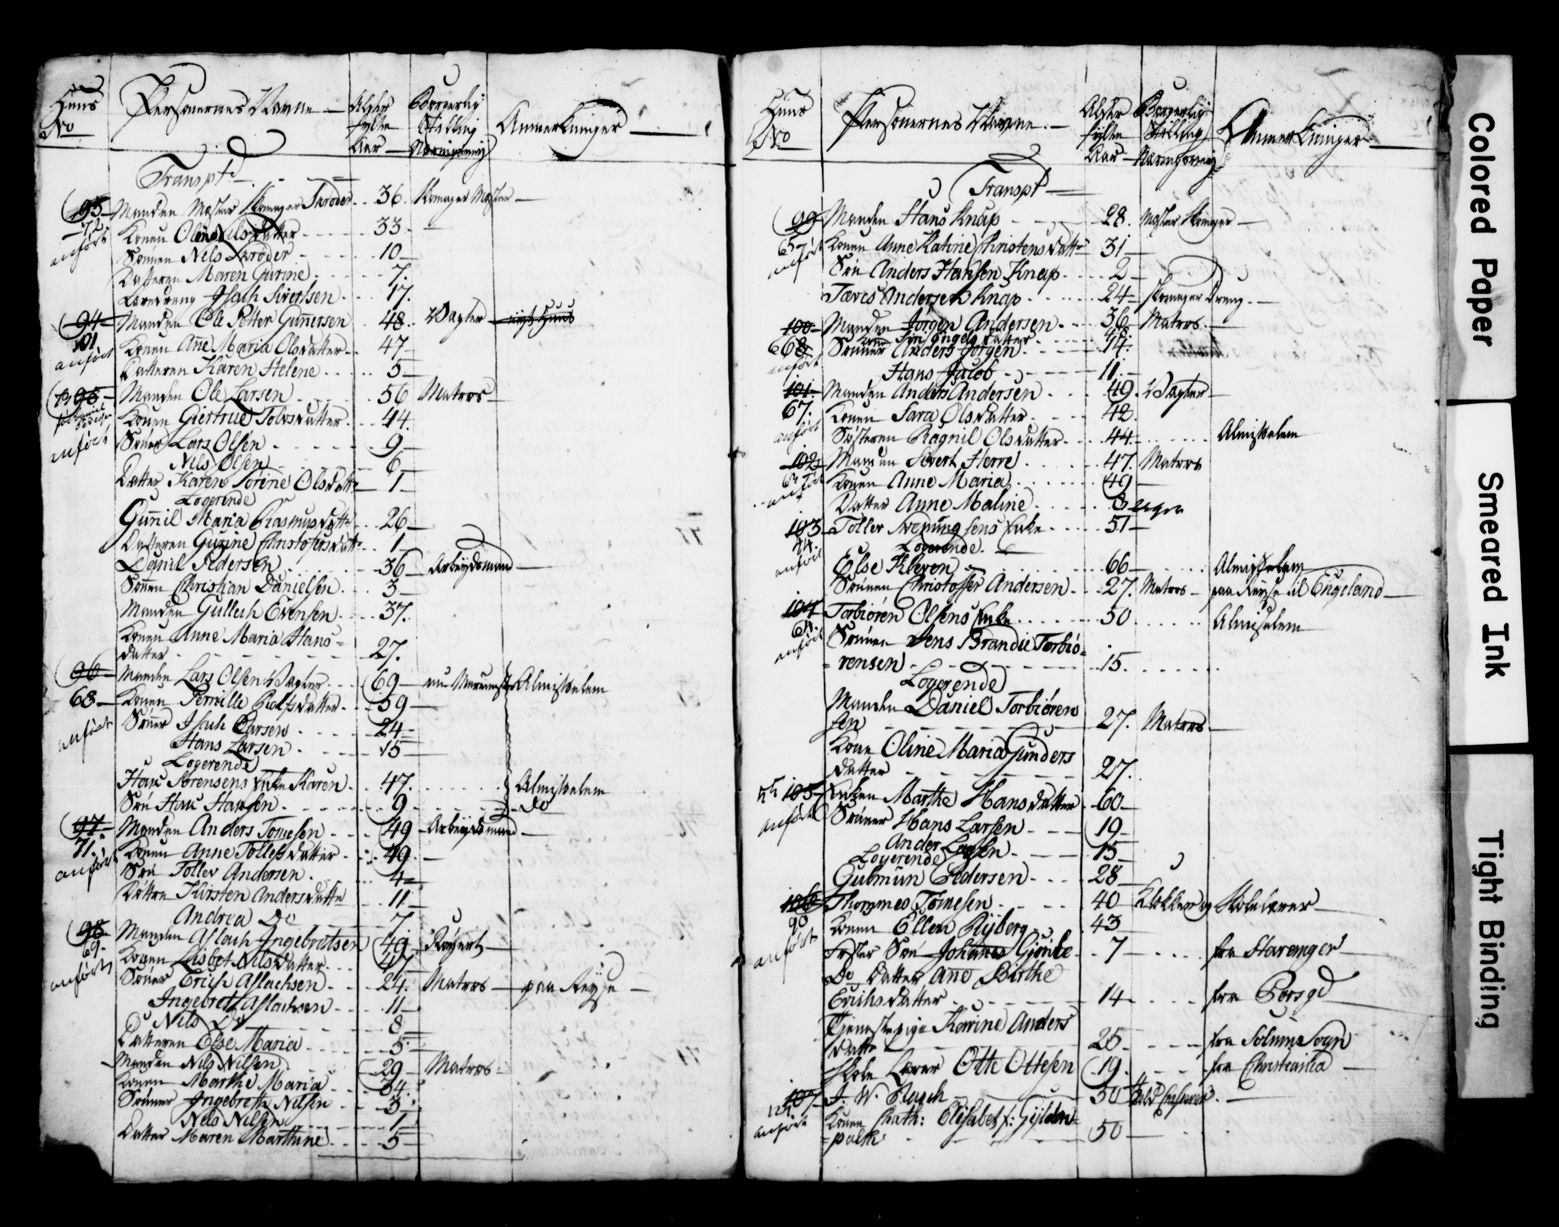 Huus No
Personernes Navne
Alder fylte Aar
Borgerlig Stilling Næringsvej
Anmerkninger
Transpt
93 Manden Mester Skomager Schrøder 36 Skomager Mester
72 Konen Oline Olsdatter 33
anført Sønnen Nels Schrøder 10
Datteren Maren Gurine 7
Læredreng Isach Sivertsen 17
94 Manden Ole Petter Gunnersen 48 Vagter
101 Konen Ane Maria Olsdatter 47
anført Datteren Karen Helene 5
95 Manden Ole Larsen 56 Matros
Konen Giertrud Tolvsdatter 44
anført Sønner Lars Olsen 9
Nils Olsen 6
Datter Karen Sørene Olsdatter 1
Logerende
Gunnil Maria Rasmusdatter 26
Datteren Gurine Christofersdatter 1
Daniel Pedersen 36 Arbeydsmand
Sønnen Christian Danielsen 3
Manden Gulleich Evensen 37
Konen Anne Maria Hans-
datter 27
96 Manden Lars Olsen Vagter 69 Almisselem
68 Konen Pernille Rolfsdatter 59
anført Sønner Isach Larsen 24
Hans Larsen 15
Logerende
Hans Sørensens Enke Karen 47 Almisselem
Søn Hans Hansen 9 Do
97 Manden Anders Tomesen 49 Arbeydsmand
71 Konen Anne Tollefsdatter 49
anført Søn Tollev Andersen 4
Dattre Kirsten Andersdatter 11
Andrea Do 7
98 Manden Aslach Ingebretsen 49 Røgert
69 Konen Lisbet Nilsdatter 47
anført Sønner Erich Aslachsen 24 Matros paa Reyse
Ingebret Aslachsen 11
Nils Do 8
Datteren Else Maria 5
Manden Nils Nilsen 29 Matros
Konen Marthe Maria 34
Sønner Ingebreth Nilsen 3
Nels Nilsen 1
Datter Maren Marthine 5
Huus No
Personernes Navne
Alder fylte Aar
Borgerlig Stilling Næringsvej
Anmerkninger
Transpt
99 Manden Hans Knap 28 Mester Skomager
65 Konen Anne Katrine Christensdatter 31
anført Søn Anders Hansen Knap 2
Tares Andersen Knap 24 Skomager Dreng
100 Manden Jørgen Andersen 36 Matros
668 Sønner Anders Jørgen 14
anført Hans Jacob 11
101 Manden Anders Andersen 49 Vagter
67 Konen Sara Olsdatter 42
anført Søsteren Ragnil Olsdatter 44 Almisselem
102 Manden Sivert Herre 47 Matros
Konen Anne Maria 49
anført Datter Anne Maline 8
103 Toller Enke 51
Logerende
anført Else Kleven 66 Almisselem
Sønnen Christoffer Andersen 27 Matros paa Reyse til Engeland
104 Torbiøren Olsens Enke 50 Almisselem
64 Sønnen Jens Brandie Torbiø-
anført rensen 15
Logerende
Manden Daniel Torbiøren
sen 27 Matros
Kone Oline Maria Gunders
datter 27
55 105 Enken Marthe Hansdatter 60
anført Sønner Hans Larsen 19
Ander Larsen 15
Logerende
Gulmun Pedersen 28
106 Thommes Tomesen 40 Klokker og Skolelærer
90 Konen Ellen Ryberg 43
anført Foster Søn Johannes Gjemke 7 fra Stavanger
Do Datter Ane Birthe
Erichsdatter 14 fra Porsgd
Tienestepige Karine Anders
datter 25 fra Solums Sogn
Skole Lærer Otte Ottesen 19 fra Christiania
107 J. W. Flugh 50
121 Konen Chath: Elisabet f: Gylden-
anført palke 50
Colored Paper
Smeared Ink
Tight Binding